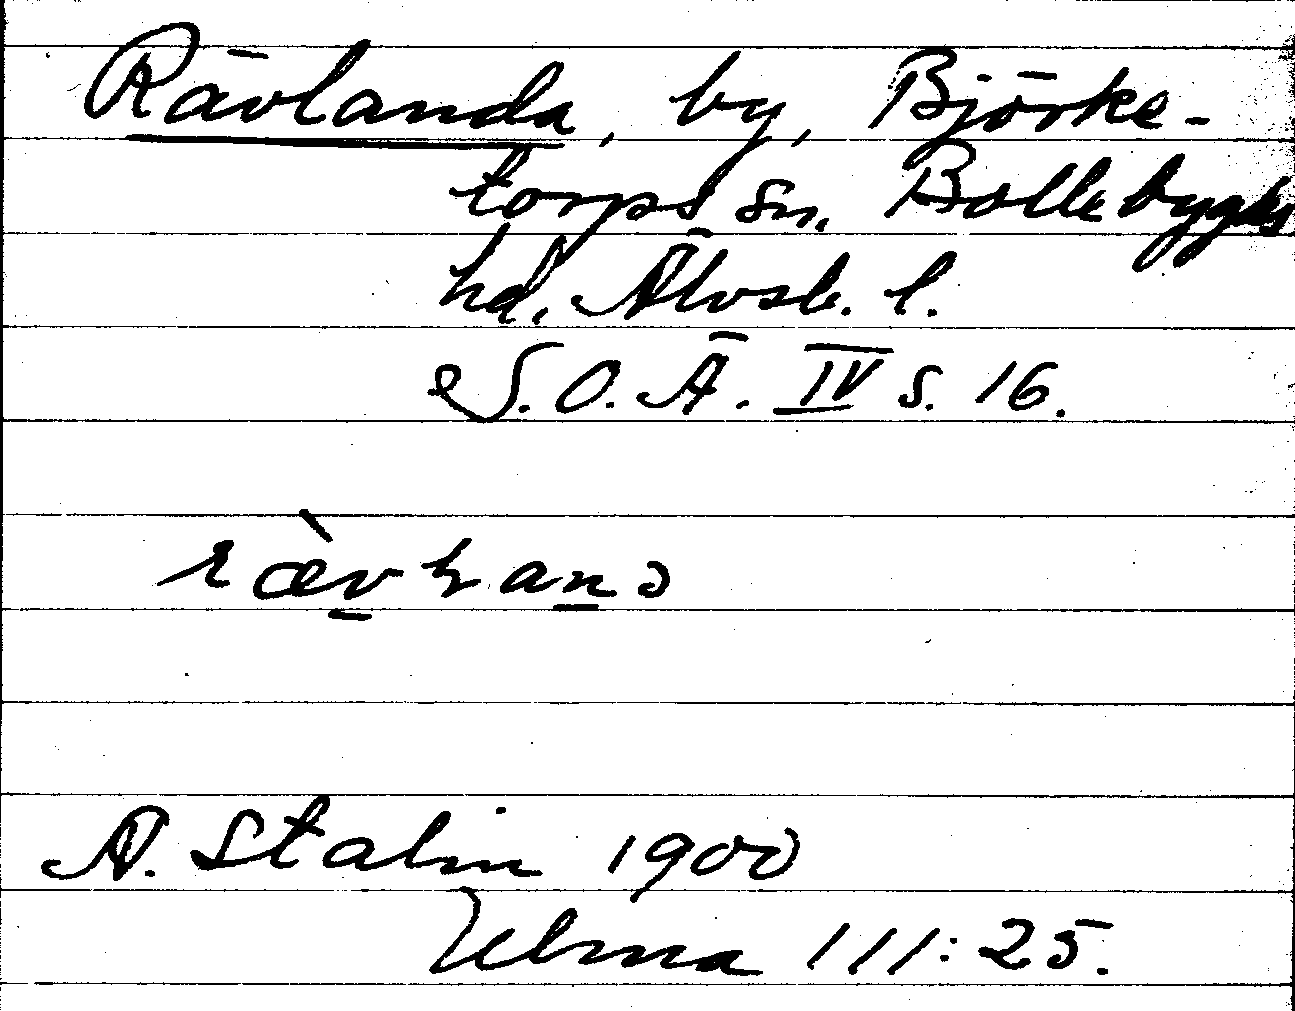 Rävlanda, by, Björke-
torps sn. Bollebygds
hd. Älvsb. l.
S.O.Ä. IV s. 16.
A. Stalin 1900
Ulma 111:25.